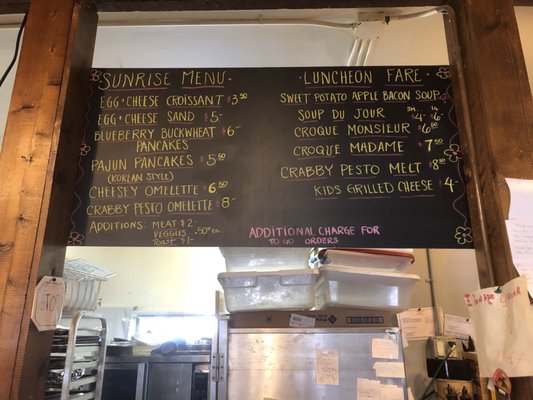 SUNRISE MENU
EGG + CHEESE CROISSANT $3.50
EGG + CHEESE SAND $5-
BLUEBERRY BUCKWHEAT $6-
PANCAKES
PAJUN PANCAKES $5.50
(KOREAN STYLE)
CHEESEY OMELETTE $6.50
CRABBY PESTO OMELETTE $8-
ADDITIONS: MEAT $2-
VEGGIES .50 ea
TOAST $1-
LUNCHEON FARE
SWEET POTATO APPLE BACON SOUP
SM. LG.
SOUP DU JOUR $4- $6-
CROQUE MONSIEUR $6.50
CROQUE MADAME $7.50
CRABBY PESTO MELT $8.50
KIDS GRILLED CHEESE $4-
ADDITIONAL CHARGE FOR
TO GO ORDERS